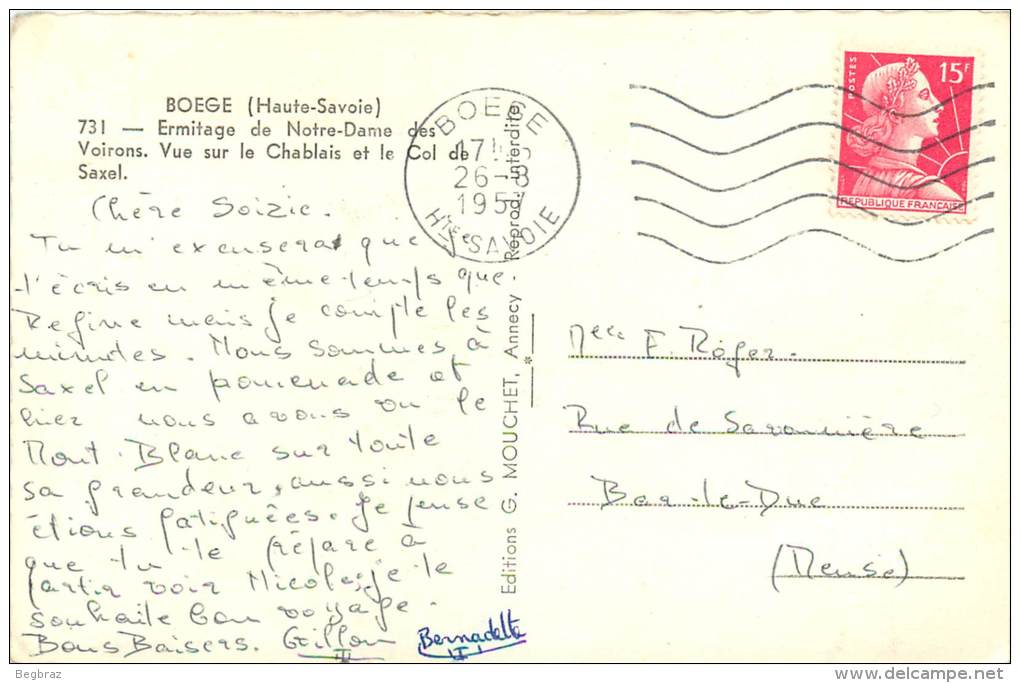 BOEGE (Haute-Savoie)
731 — Ermitage de Notre-Dame des
Voirons. Vue sur le Chablais et le Col de
Saxel.
Chère Soizic.
Tu m'excuseras que je
t'écris en même temps que.
Régine mais je compte les
minutes. Nous sommes à
Saxel en promenade et
hier nous avons vu le
Mont-Blanc sur toute
sa grandeur, aussi nous
étions fatiguées. Je pense
que tu te prépare à
partir voir Nicole, je te
souhaite bon voyage.
Bons Baisers.
Bernadette
Editions G. MOUCHET, Annecy * Reprod. interdite
BOEGE
26-8
1957
Hte SAVOIE
POSTES
15F
REPUBLIQUE FRANCAISE
Melle F. Róger.
Rue de Savonnière
Bar-le-Duc
(Meuse)
Begbraz
delcampe.net